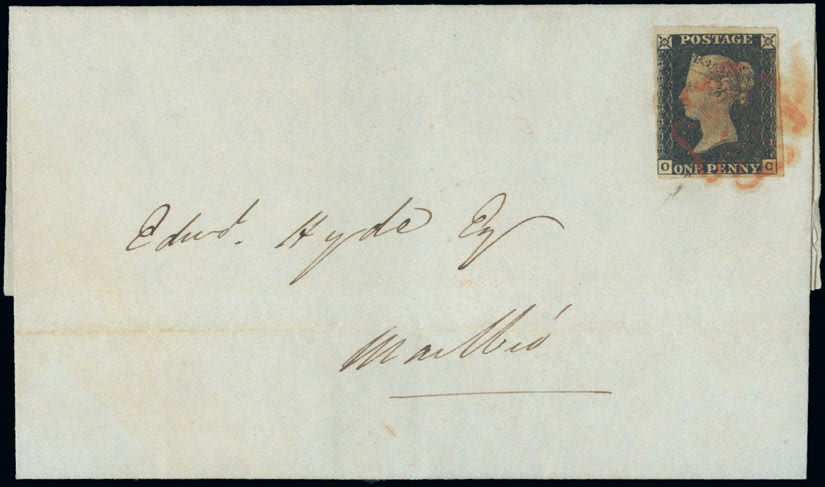 POSTAGE
O C
ONE PENNY
Edwd. Hyde Esq